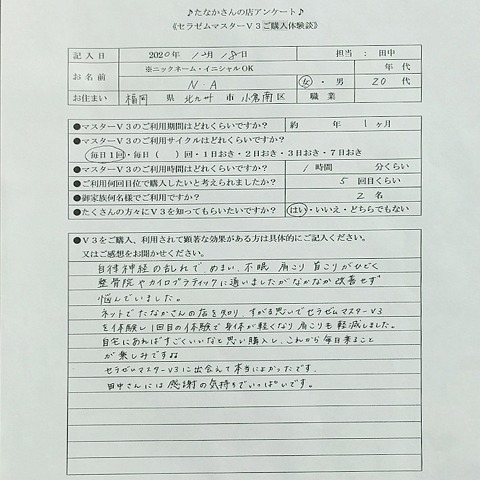 ♪たなかさんの店アンケート♪
《セラゼムマスターV3ご購入体験談》
記入日 2020年 12月 18日 担当：田中
お名前 ※ニックネーム・イニシャルOK 年代
N・A 女・男 20代
お住まい 福岡 県 北九州 市 小倉南 区 職業
●マスターV3のご利用期間はどれくらいですか？ 約 年 1ヶ月
●マスターV3のご利用サイクルはどれくらいですか？
毎日1回・毎日（ ）回・1日おき・2日おき・3日おき・7日おき
●マスターV3のご利用時間はどれくらいですか？ 1時間 分くらい
●ご利用何回目位で購入したいと考えられましたか？ 5回目くらい
●御家族何名様でご利用ですか？ 2名
●たくさんの方々にV3を知ってもらいたいですか？ はい・いいえ・どちらでもない
●V3をご購入、利用されて顕著な効果がある方は具体的にご記入ください。
又はご感想をお聞かせください。
自律神経の乱れで、めまい、不眠 肩こり 首こりがひどく
整骨院やカイロプラティックに通いましたがなかなか改善せず
悩んでいました。
ネットでたなかさんの店を知り、すがる思いでセラゼムマスターV3
を体験し1回目の体験で身体が軽くなり肩こりも軽減しました。
自宅にあればすごくいいなと思い購入し、これから毎日乗ること
が楽しみです
セラゼムマスターV3に出会えて本当によかったです。
田中さんには感謝の気持ちでいっぱいです。